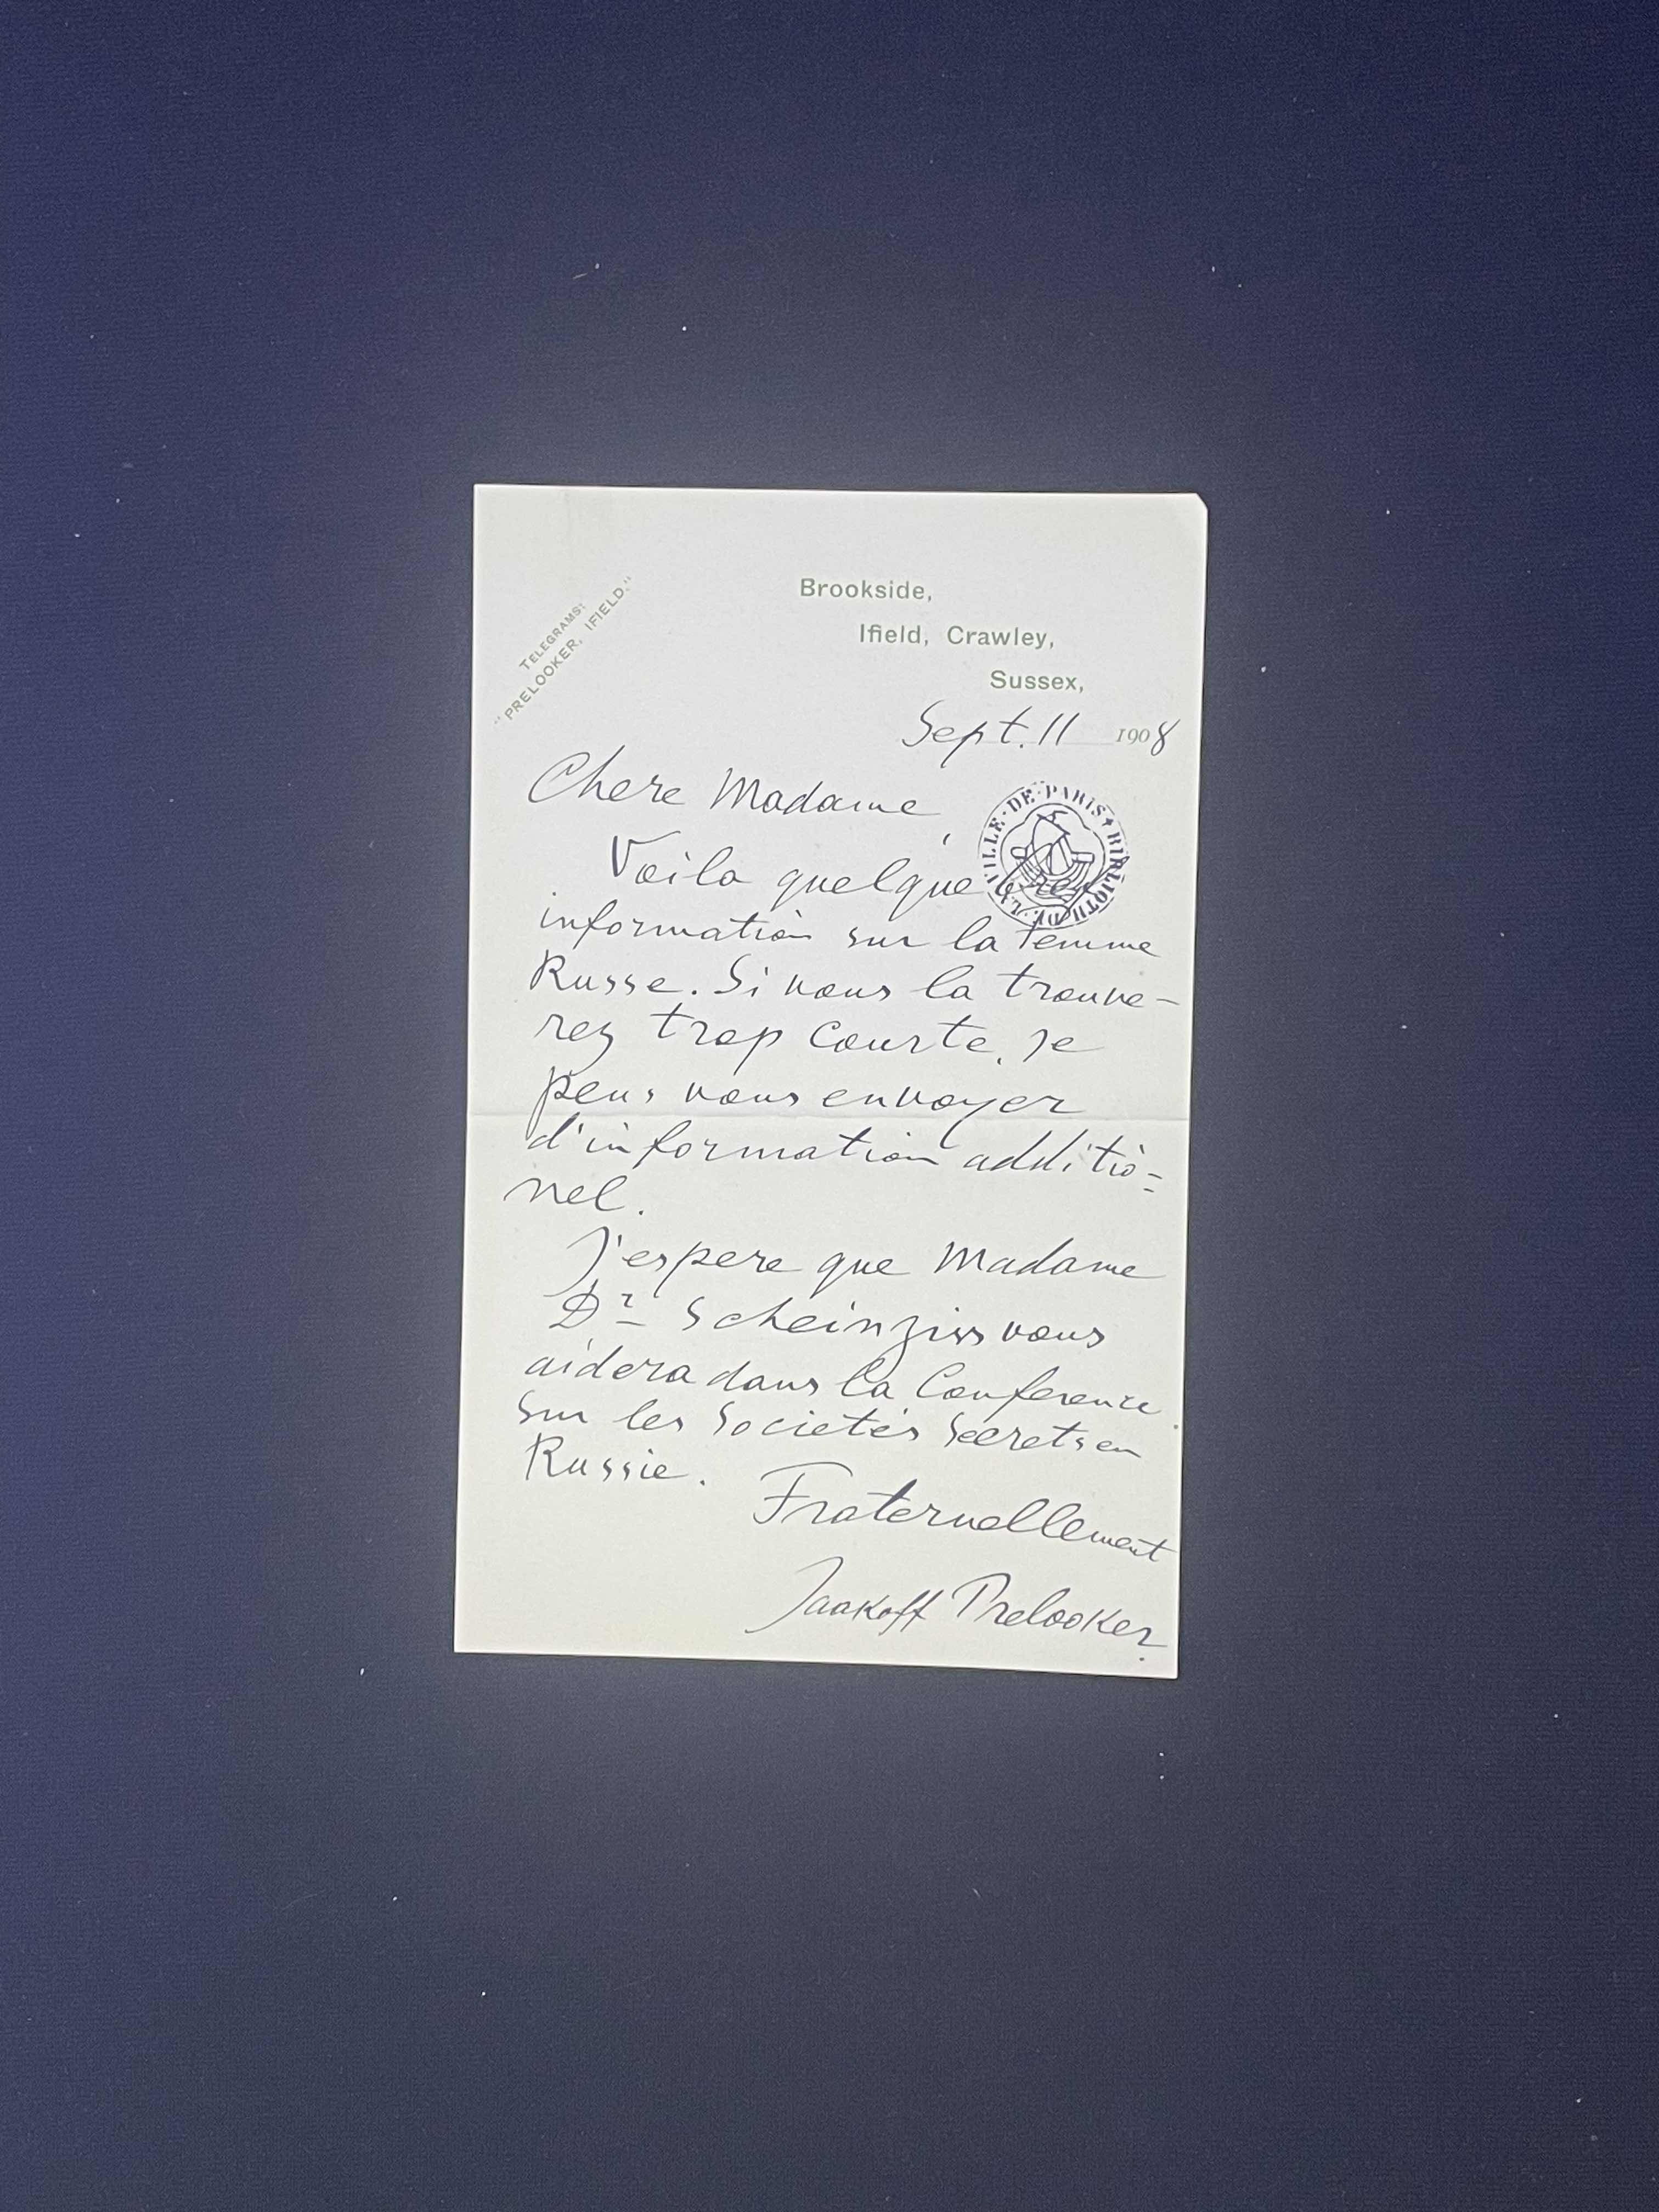 TELEGRAMS:
"PRELOOKER, IFIELD."
Brookside,
Ifield, Crawley,
Sussex,
Sept. 11 1908
Chere Madame,
Voila quelque
information sur la femme
Russe. Si vous la trouve-
rez trop courte, je
peus vous envoyer
d'information additio=
nel.
J'espere que Madame
Dr Scheinziss vous
aidera dans la Conference
sur les Societés Secrets en
Russie.
Fraternellement
Jaakoff Prelooker.
VILLE·DE·PARIS